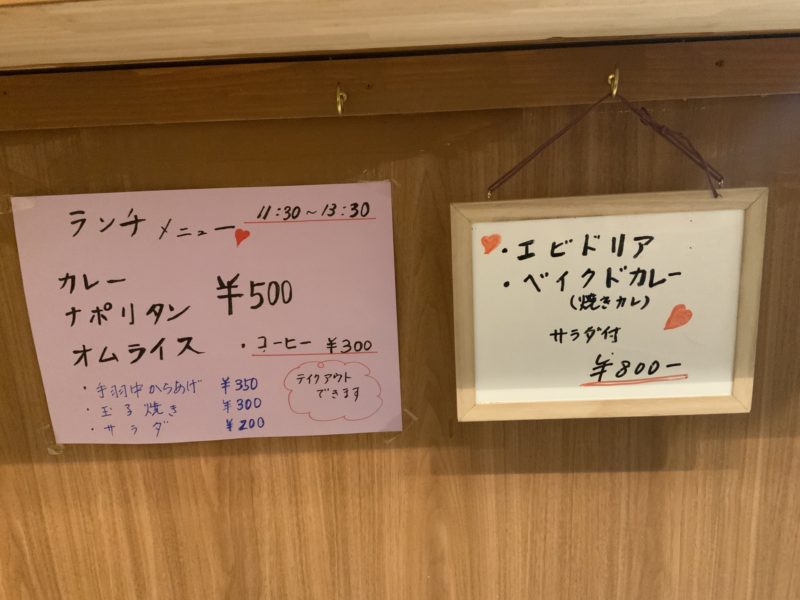 ランチメニュー 11:30～13:30
カレー
ナポリタン ¥500
オムライス ・コーヒー ¥300
・手羽中からあげ ¥350
・玉子焼き ¥300
・サラダ ¥200
テイクアウト
できます
・エビドリア
・ベイクドカレー
(焼きカレ)
サラダ付
¥800-